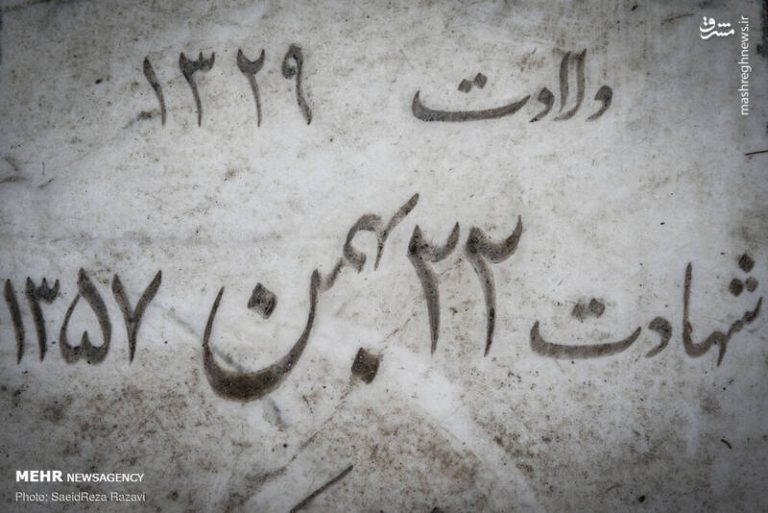 مشرق
mashreghnews.ir
ولادت ۱۳۲۹
شهادت ۲۲ بهمن ۱۳۵۷
MEHR NEWSAGENCY
Photo: SaeidReza Razavi